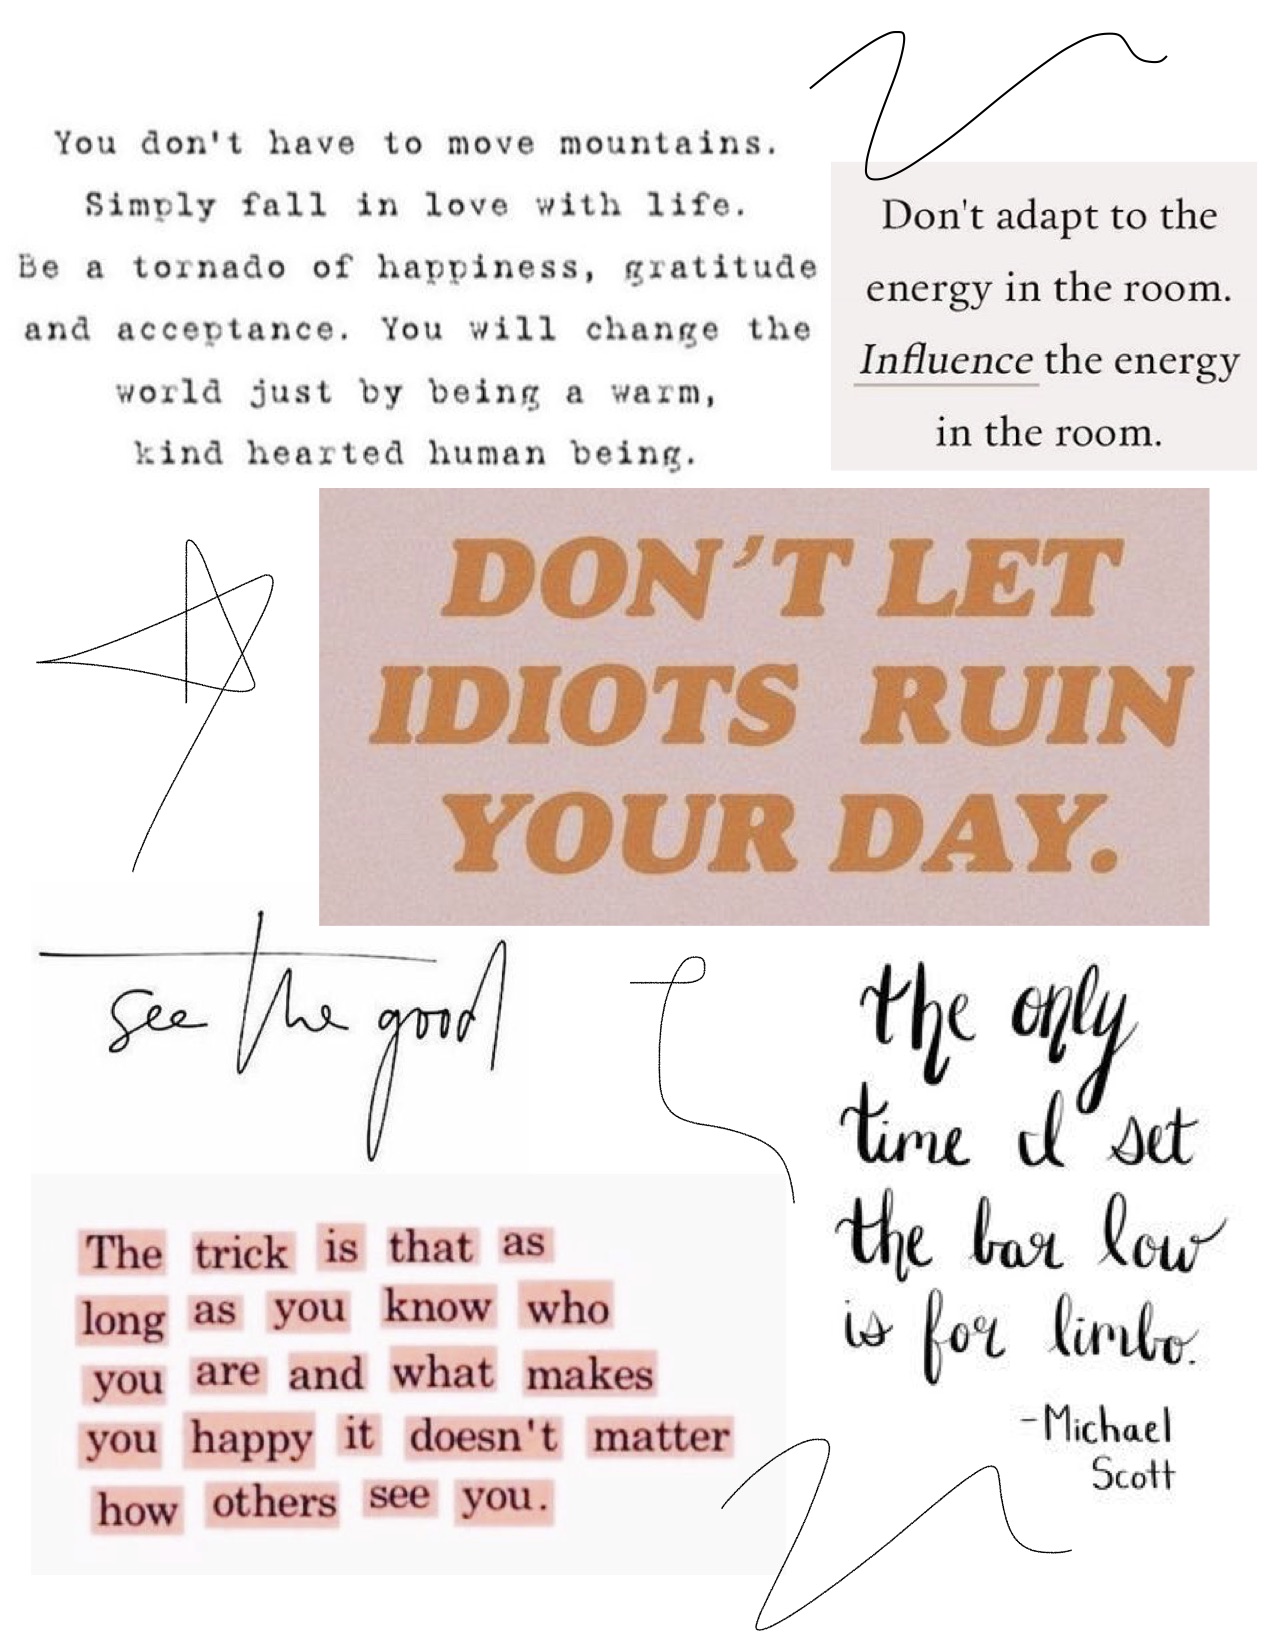 You don't have to move mountains.
Simply fall in love with life.
Be a tornado of happiness, gratitude
and acceptance. You will change the
world just by being a warm,
kind hearted human being.
Don't adapt to the
energy in the room.
Influence the energy
in the room.
DON'T LET
IDIOTS RUIN
YOUR DAY.
see the good
The trick is that as
long as you know who
you are and what makes
you happy it doesn't matter
how others see you.
the only
time I set
the bar low
is for limbo.
-Michael
Scott